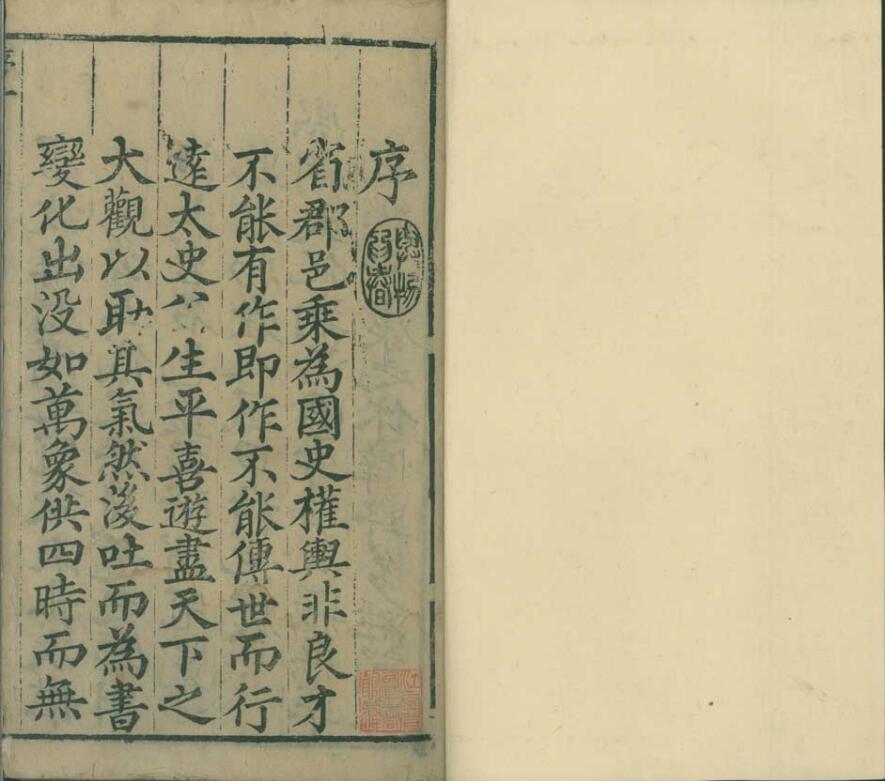 序
與物
爲春
省郡邑乘為國史權輿非良才
不能有作即作不能傳世而行
逺太史公生平喜遊盡天下之
大觀以取其氣然後吐而為書
變化出没如萬象供四時而無
序一